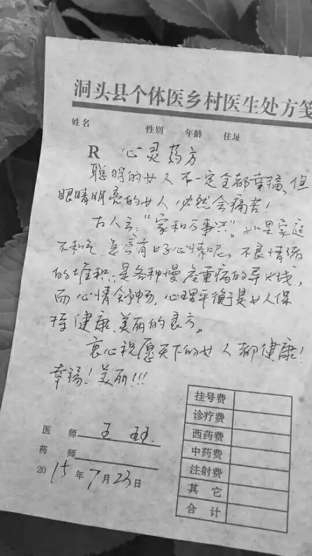 洞头县个体医乡村医生处方笺
姓名 性别 年龄 住址
R 心灵药方
聪明的女人不一定全都幸福,但
眼睛明亮的女人必然会痛苦!
古人云:“家和万事兴”,如果家庭
不和,怎会有好心情呢。不良情绪
的堆积,是各种慢度重病的导火线,
而心情舒畅,心理平衡是女人保
持健康、美丽的良方。
衷心祝愿天下的女人都健康!
幸福!美丽!!!
挂号费
诊疗费
西药费
中药费
注射费
其它
合计
医师 王
药师
2015年7月23日